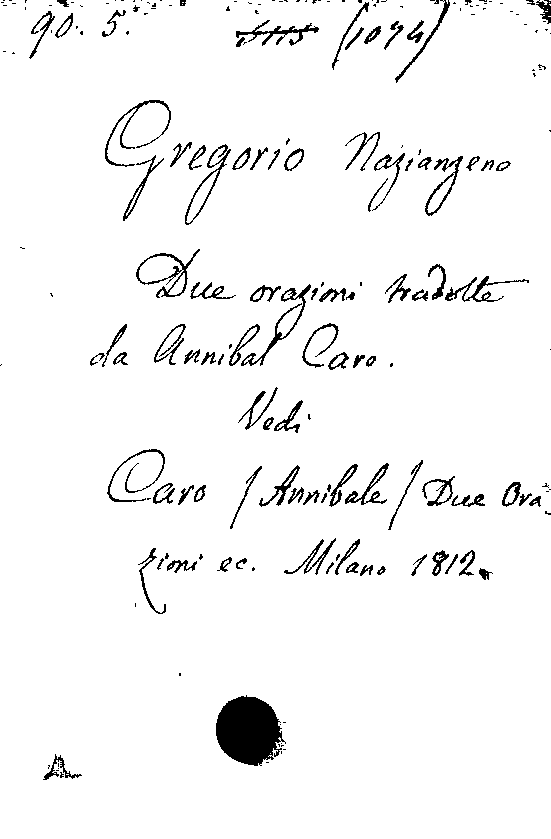 90. 5. (1074)
Gregorio Nazianzeno
Due orazioni tradotte
da Annibal Caro.
Vedi
Caro / Annibale / Due Ora_
zioni ec. Milano 1812.